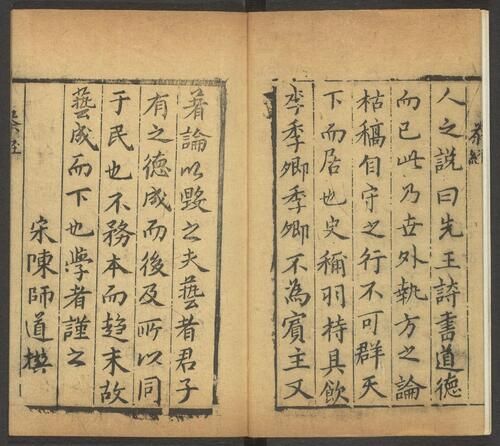 茶經
人之說曰先王詩書道德
而已此乃世外執方之論
枯槁自守之行不可群天
下而居也史稱羽持具飲
李季卿季卿不為賓主又
著論以毀之夫藝者君子
有之德成而後及所以同
于民也不務本而趨末故
藝成而下也學者謹之
宋陳師道撰